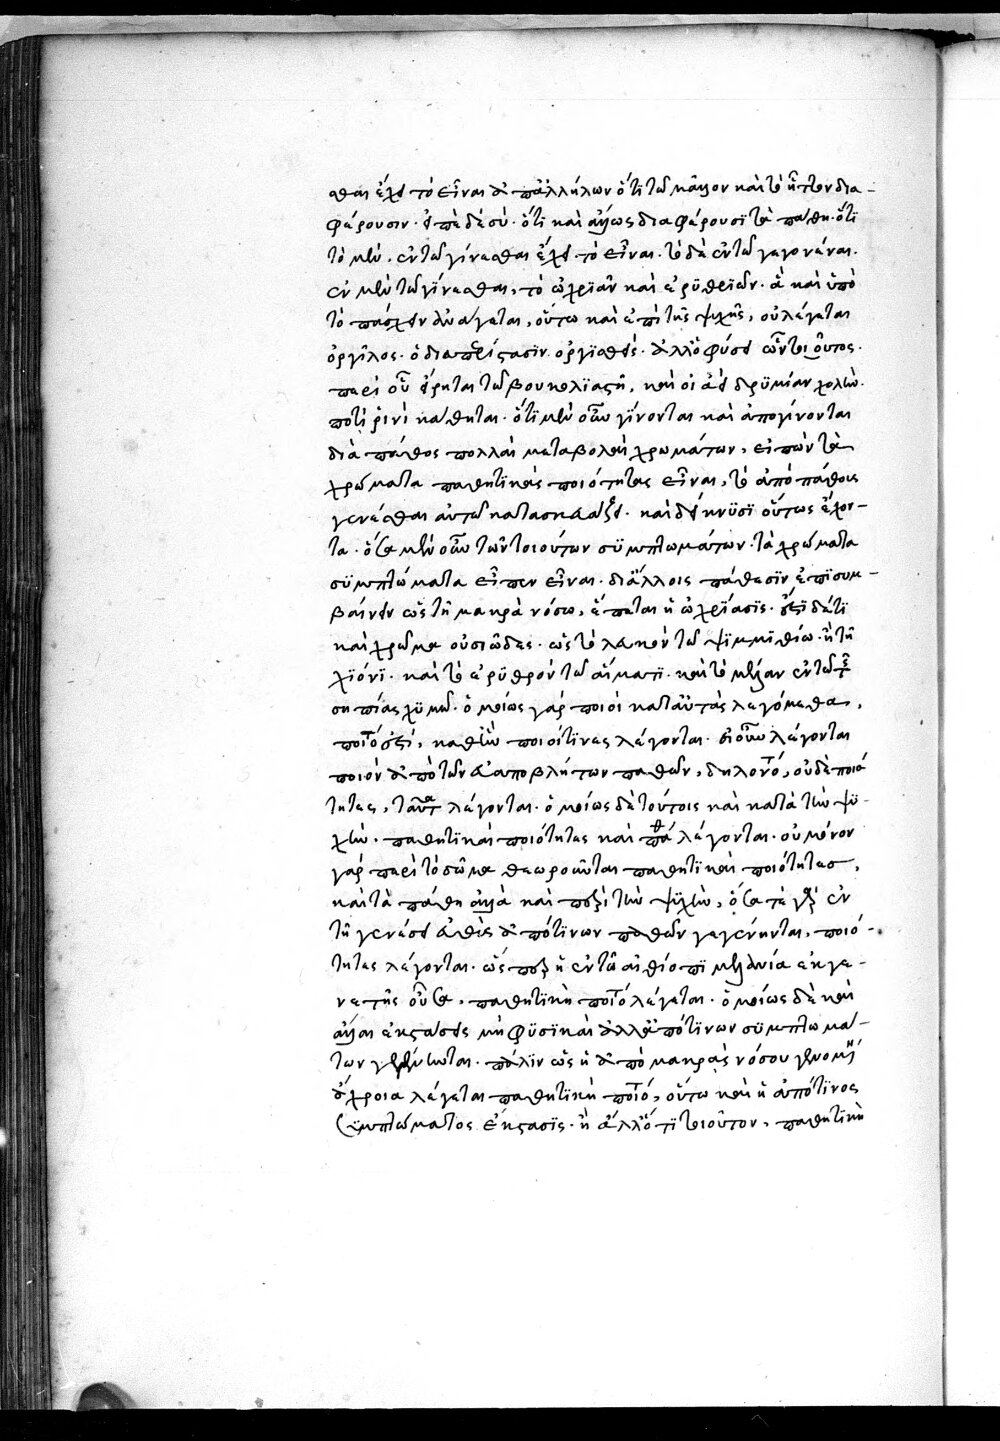 σθαι ἔχει τὸ εἶναι ἀπαλλήλων ὅτι τῶ μᾶλλον καὶ τὸ ἧττον δια-
φέρουσιν· ὅτι καὶ ἄλλως διαφέρουσι τὰ πάθη· ὅτι
τὸ μὲν, ἐν τῶ γίνεσθαι ἔχει τὸ εἶναι· τὸ δὲ ἐν τῶ γεγονέναι·
ἐν μὲν τῶ γίνεσθαι, τὸ ὠχριᾶν καὶ ἐρυθριᾶν· ἃ καὶ ὑπὸ
τὸ πάσχειν ἀνάγεται, οὕτω καὶ ἐπὶ τῆς ψυχῆς, οὐ λέγεται
ὀργῖλος· ὁ διὰ περίστασιν ὀργισθείς· ἀλλ' ὁ φύσει ὢν τοιοῦτος·
περὶ οὗ εἴρηται τῶ βουκολιαστῆ, καὶ οἱ ἀεὶ δριμεῖα χολὴ
ποτὶ ῥινὶ κάθηται· ὅτι μὲν οὖν γίνονται καὶ ἀπογίνονται
διὰ πάθος πολλαὶ μεταβολαὶ χρωμάτων, εἰπὼν τὰ
χρώματα παθητικὰς ποιότητας εἶναι, τὸ ἀπὸ πάθους
γενέσθαι αὐτῶ κατασκευάζει· καὶ δείκνυσι οὕτως ἔχον-
τα· ὅσα μὲν οὖν τῶν τοιούτων συμπτωμάτων· τὰ χρώματα
συμπτώματα εἶπεν εἶναι· δι' ἄλλοις πάθεσιν ἐπισυμ-
βαίνειν ὡς τῆ μακρᾶ νόσω, ἕπεται ἡ ὠχρίασις· ἔστι δέ τι
καὶ χρῶμα οὐσιῶδες· ὡς τὸ λευκὸν τῶ ψιμμιθίω· ἢ τῆ
χιόνι· καὶ τὸ ἐρυθρὸν τῶ αἵματι· καὶ τὸ μέλαν ἐν τῶ τῆς
σηπίας χυμῶ· ὁμοίως γάρ ποιοὶ κατ' αὐτὰς λεγόμεθα,
ποιότησί, καθὼ ποιοί τινες λέγονται· εἰ οὖν λέγονται
ποιοὶ ἀπὸ τῶν εὐαποβλήτων παθῶν, δηλονότι, οὐδὲ ποιό
τητες, ταῦτα λέγονται· ὁμοίως δὲ τούτοις καὶ κατὰ τὴν ψυ-
χὴν· παθητικαὶ ποιότητες καὶ πάθη λέγονται· οὐ μόνον
γὰρ περὶ τὸ σῶμα θεωροῦνται παθητικαὶ ποιότητες,
καὶ τὰ πάθη ἀλλὰ καὶ περὶ τὴν ψυχὴν, ὅσα τε γὰρ ἐν
τῆ γενέσει εὐθὺς ἀπό τινων παθῶν γεγένηνται, ποιό-
τητες λέγονται· ὡς περ ἡ ἐν τῶ αἰθίοπι μελανία ἐκ γε-
νετῆς οὖσα, παθητικὴ ποιότης λέγεται· ὁμοίως δὲ καὶ
ἄλλαι ἐκστάσεις μὴ φυσικαὶ ἀλλ' ἀπό τινων συμπτωμά-
των γεγένωται· πάλιν ὡς ἡ ἀπὸ μακρᾶς νόσου γενομένη
ἄχροια λέγεται παθητικὴ ποιότης, οὕτω καὶ ἡ ἀπό τινος
συμπτώματος ἔκστασις· ἢ ἄλλό τι τοιοῦτον, παθητικὴ